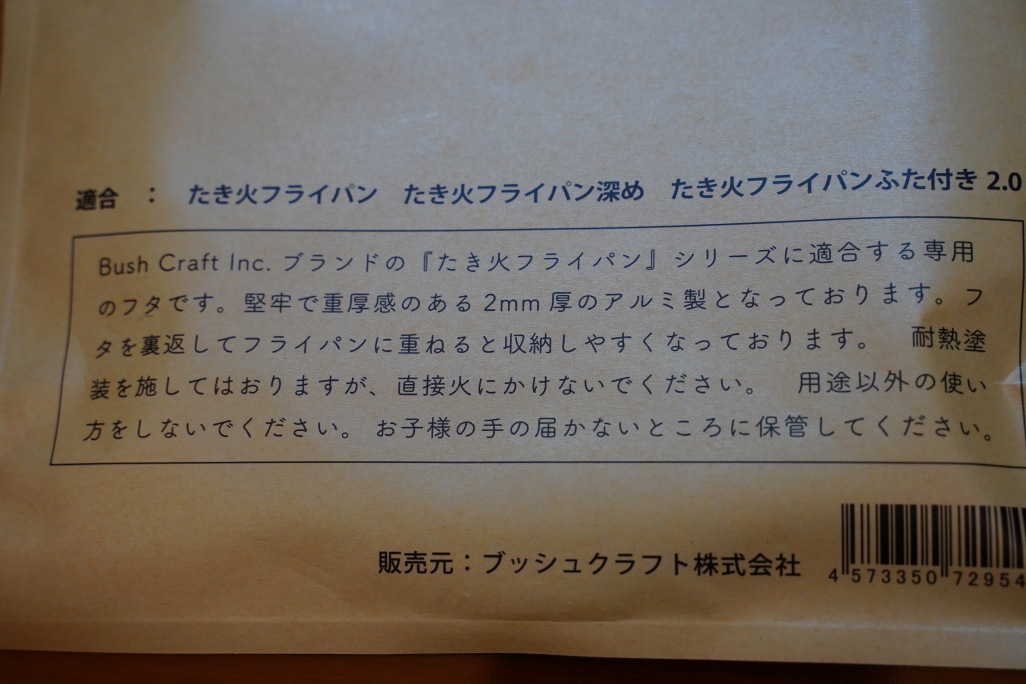 適合 ： たき火フライパン たき火フライパン深め たき火フライパンふた付き 2.0
Bush Craft Inc. ブランドの『たき火フライパン』シリーズに適合する専用
のフタです。堅牢で重厚感のある 2mm 厚のアルミ製となっております。フ
タを裏返してフライパンに重ねると収納しやすくなっております。 耐熱塗
装を施してはおりますが、直接火にかけないでください。 用途以外の使い
方をしないでください。 お子様の手の届かないところに保管してください。
販売元：ブッシュクラフト株式会社
4 573350 72954